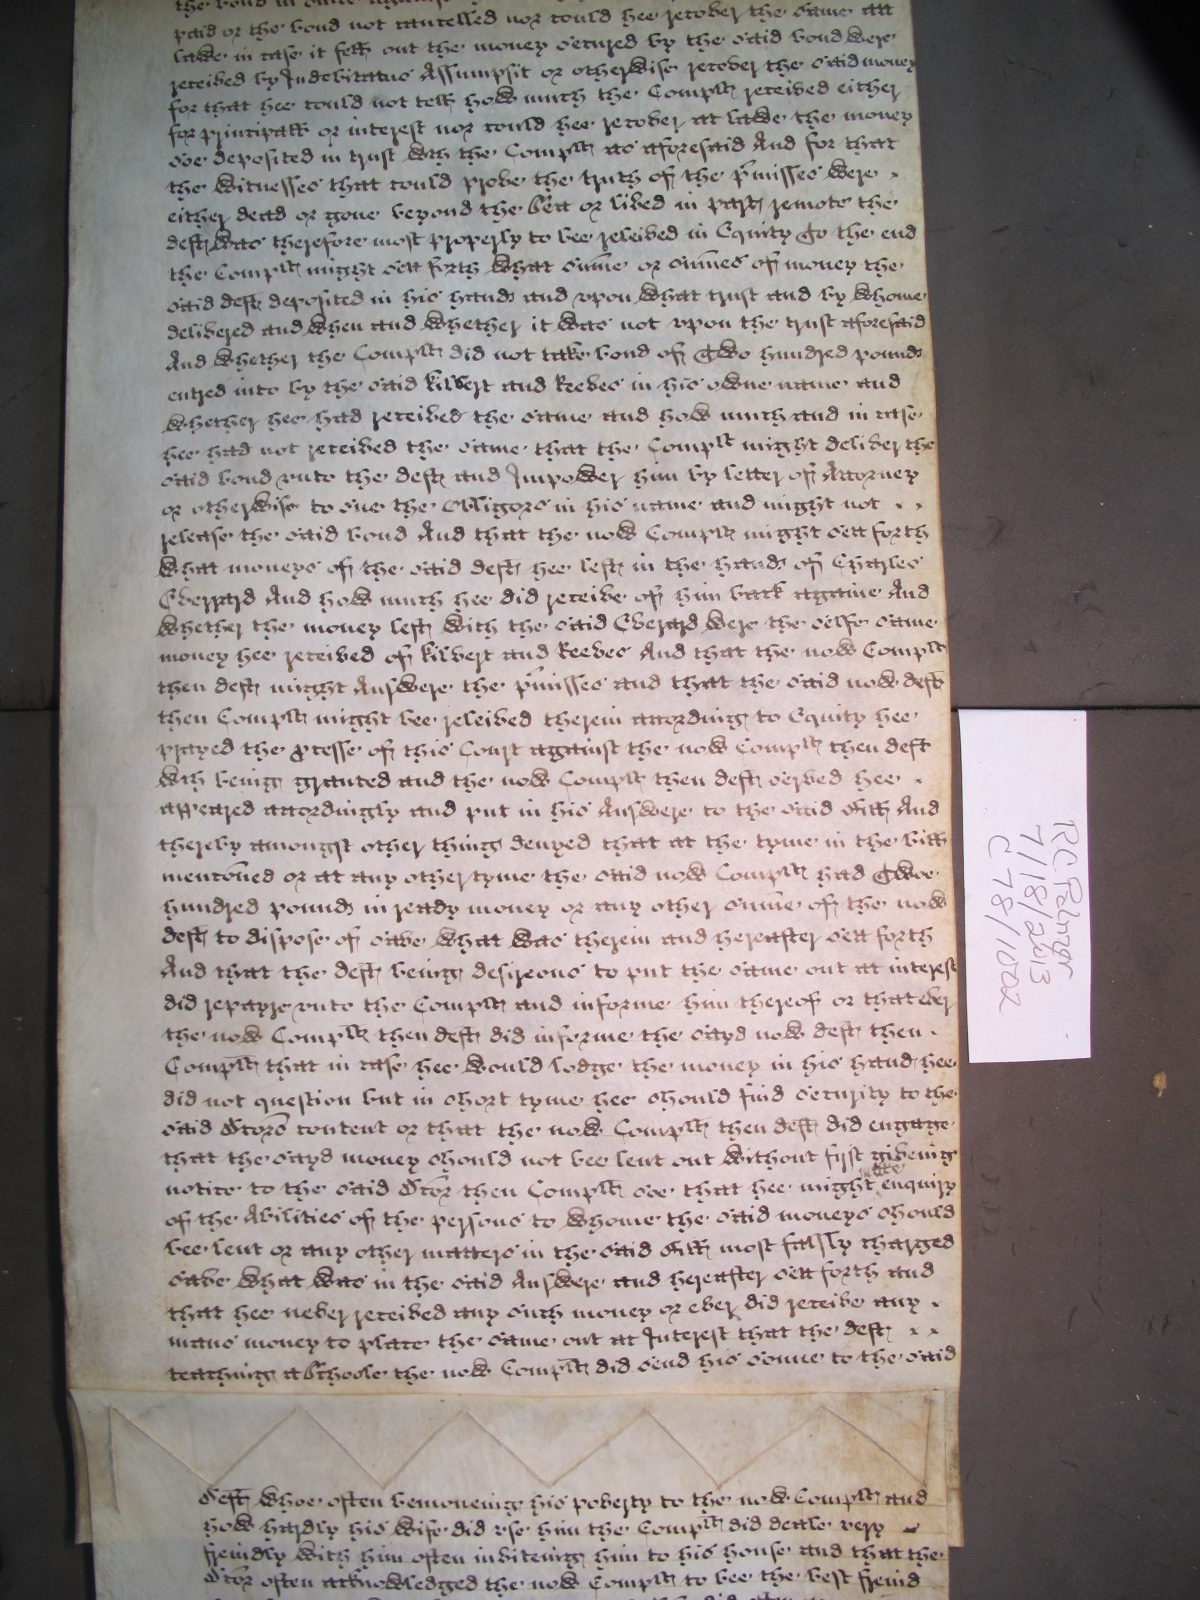 the bond in
paid or the bond not cancelled nor could hee recover the same att
lawe in case it fell out the money secured by the said bond were
received by Indebitatus Assumpsit or otherwise recover the said money
for that hee could not tell how much the Complt received either
for principall or interest nor could hee recover at lawe the money
soe deposited in trust wth the Complt as aforesaid And for that
the witnesses that could prove the truth of the p'misses were
either dead or gone beyond the Sea or lived in parts remote the
deft was therefore most properly to bee releived in Equity To the end
the Complt might sett forth what summe or summes of money the
said deft deposited in his hands and upon what trust and by whome
delivered and when and whether it was not upon the trust aforesaid
And whether the Complt did not take bond of Two hundred pounds
entred into by the said Kilvert and Reeves in his owne name and
whether hee had received the same and how much and in case
hee had not received the same that the Complt might deliver the
said bond unto the deft and Impower him by letter of Attorney
or otherwise to sue the Obligors in his name and might not
release the said bond And that the now Complt might sett forth
what moneys of the said deft hee left in the hands of Charles
Everard And how much hee did receive of him back againe And
whether the money left with the said Everard were the selfe same
money hee received of Kilvert and Reeves And that the now Complt
then deft might Answere the p'misses and that the said now deft
then Complt might bee releived therein according to Equity hee
prayed the p'cesse of this Court against the now Complt then deft
wch being granted and the now Complt then deft served hee
appeared accordingly and put in his Answere to the said Bill And
thereby amongst other things denyed that at the tyme in the bill
mentoned or at any other tyme the said now Complt had Twoe
hundred pounds in ready money or any other summe of the now
deft to dispose of save what was therein and hereafter sett forth
And that the deft being desireous to put the same out at interest
did repayre unto the Complt and informe him thereof or that ever
the now Complt then deft did informe the sayd now deft then
Complt that in case hee would lodge the money in his hands hee
did not question but in short tyme hee should find security to the
said Dtors content or that the now Complt then deft did engage
that the sayd money should not bee lent out without first giveing
notice to the said Dtor then Complt soe that hee might enquire
of the Abilities of the persons to whome the said moneys should
bee lent or any other matters in the said Bill most falsly charged
save what was in the said Answere and hereafter sett forth and
that hee never received any such money or ever did receive any
mans money to place the same out at Interest that the deft
teaching a Schoole the now Complt did send his sonne to the said
Deft whoe often bemoneing his poverty to the now Complt and
how hardly his wife did use him the Complt did deale very
freindly with him often inviteing him to his house and that the
Dtor often acknowledged the now Complt to bee the best freind
RC Palmer
7/18/2013
C 78/1002